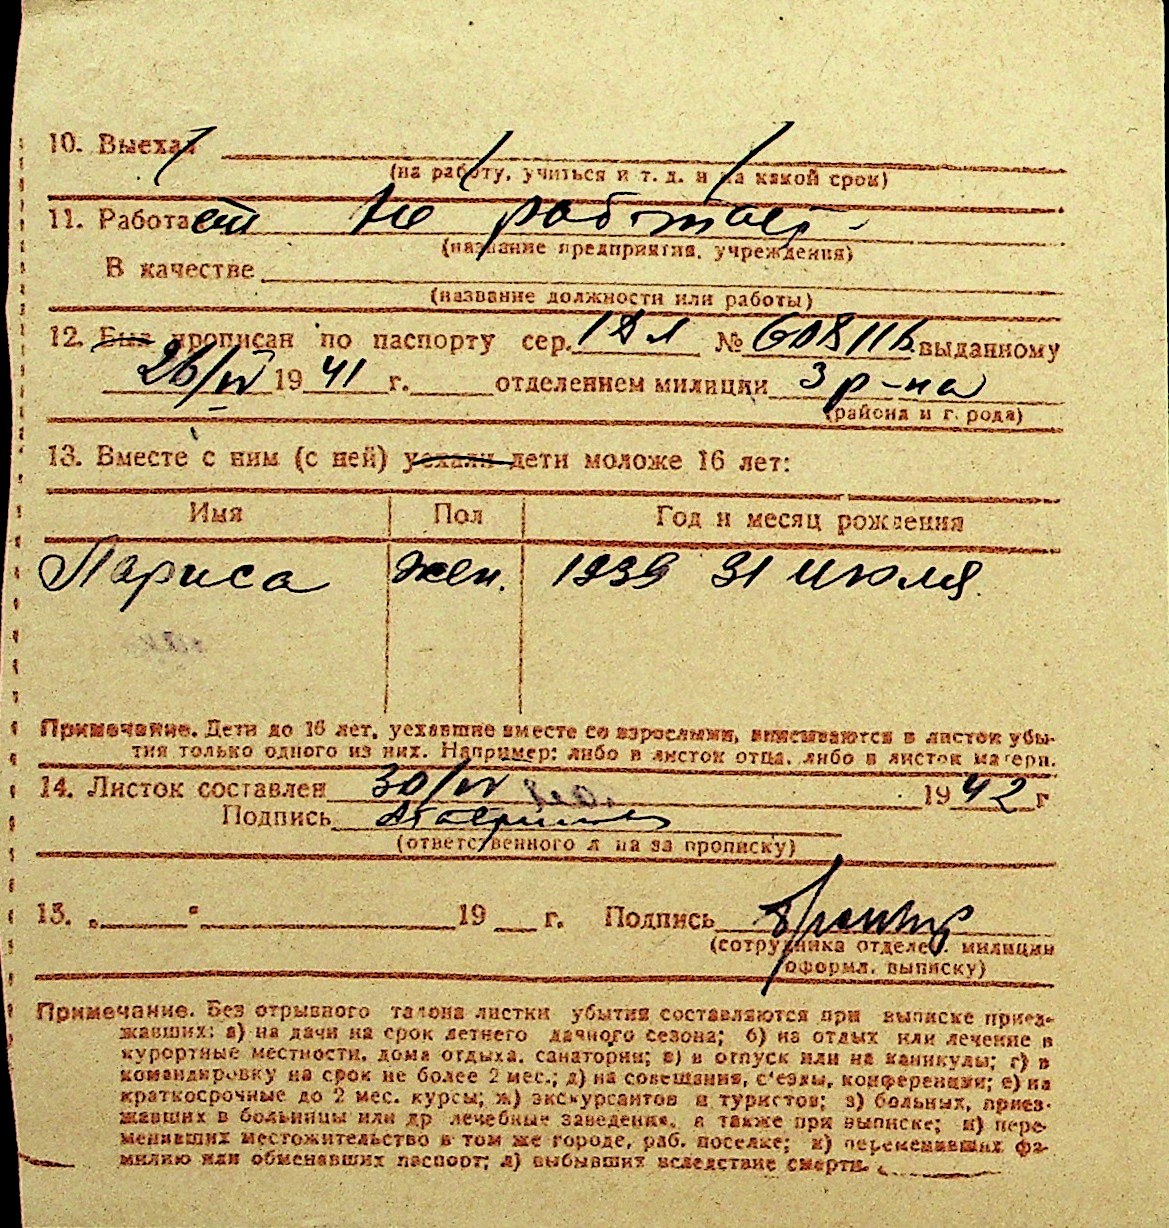 10. Выехал
(на работу, учиться и т. д. и на какой срок)
11. Работает не работает
(название предприятия, учреждения)
В качестве
(название должности или работы)
12. Был прописан по паспорту сер. № 608116 выданному
26/IV 1941 г. отделением милиции 3 р-на
(района и города)
13. Вместе с ним (с ней) уехали дети моложе 16 лет:
Имя Пол Год и месяц рождения
Лариса Жен. 1939 31 июля
Примечание. Дети до 16 лет, уехавшие вместе со взрослыми, вписываются в листок убы-
тия только одного из них. Например: либо в листок отца, либо в листок матери.
14. Листок составлен 1942 г
Подпись
(ответственного лица за прописку)
15. „ “ 19 г. Подпись
(сотрудника отделен. милиции
оформл. выписку)
Примечание. Без отрывного талона листки убытия составляются при выписке приез-
жавших: а) на дачи на срок летнего дачного сезона; б) на отдых или лечение в
курортные местности, дома отдыха, санатории; в) в отпуск или на каникулы; г) в
командировку на срок не более 2 мес.; д) на совещания, с'езды, конференции; е) на
краткосрочные до 2 мес. курсы; ж) экскурсантов и туристов; з) больных, приез-
жавших в больницы или др лечебные заведения, а также при выписке; и) пере-
менивших местожительство в том же городе, раб. поселке; к) переменивших фа-
милию или обменавших паспорт; л) выбывших вследствие смерти.